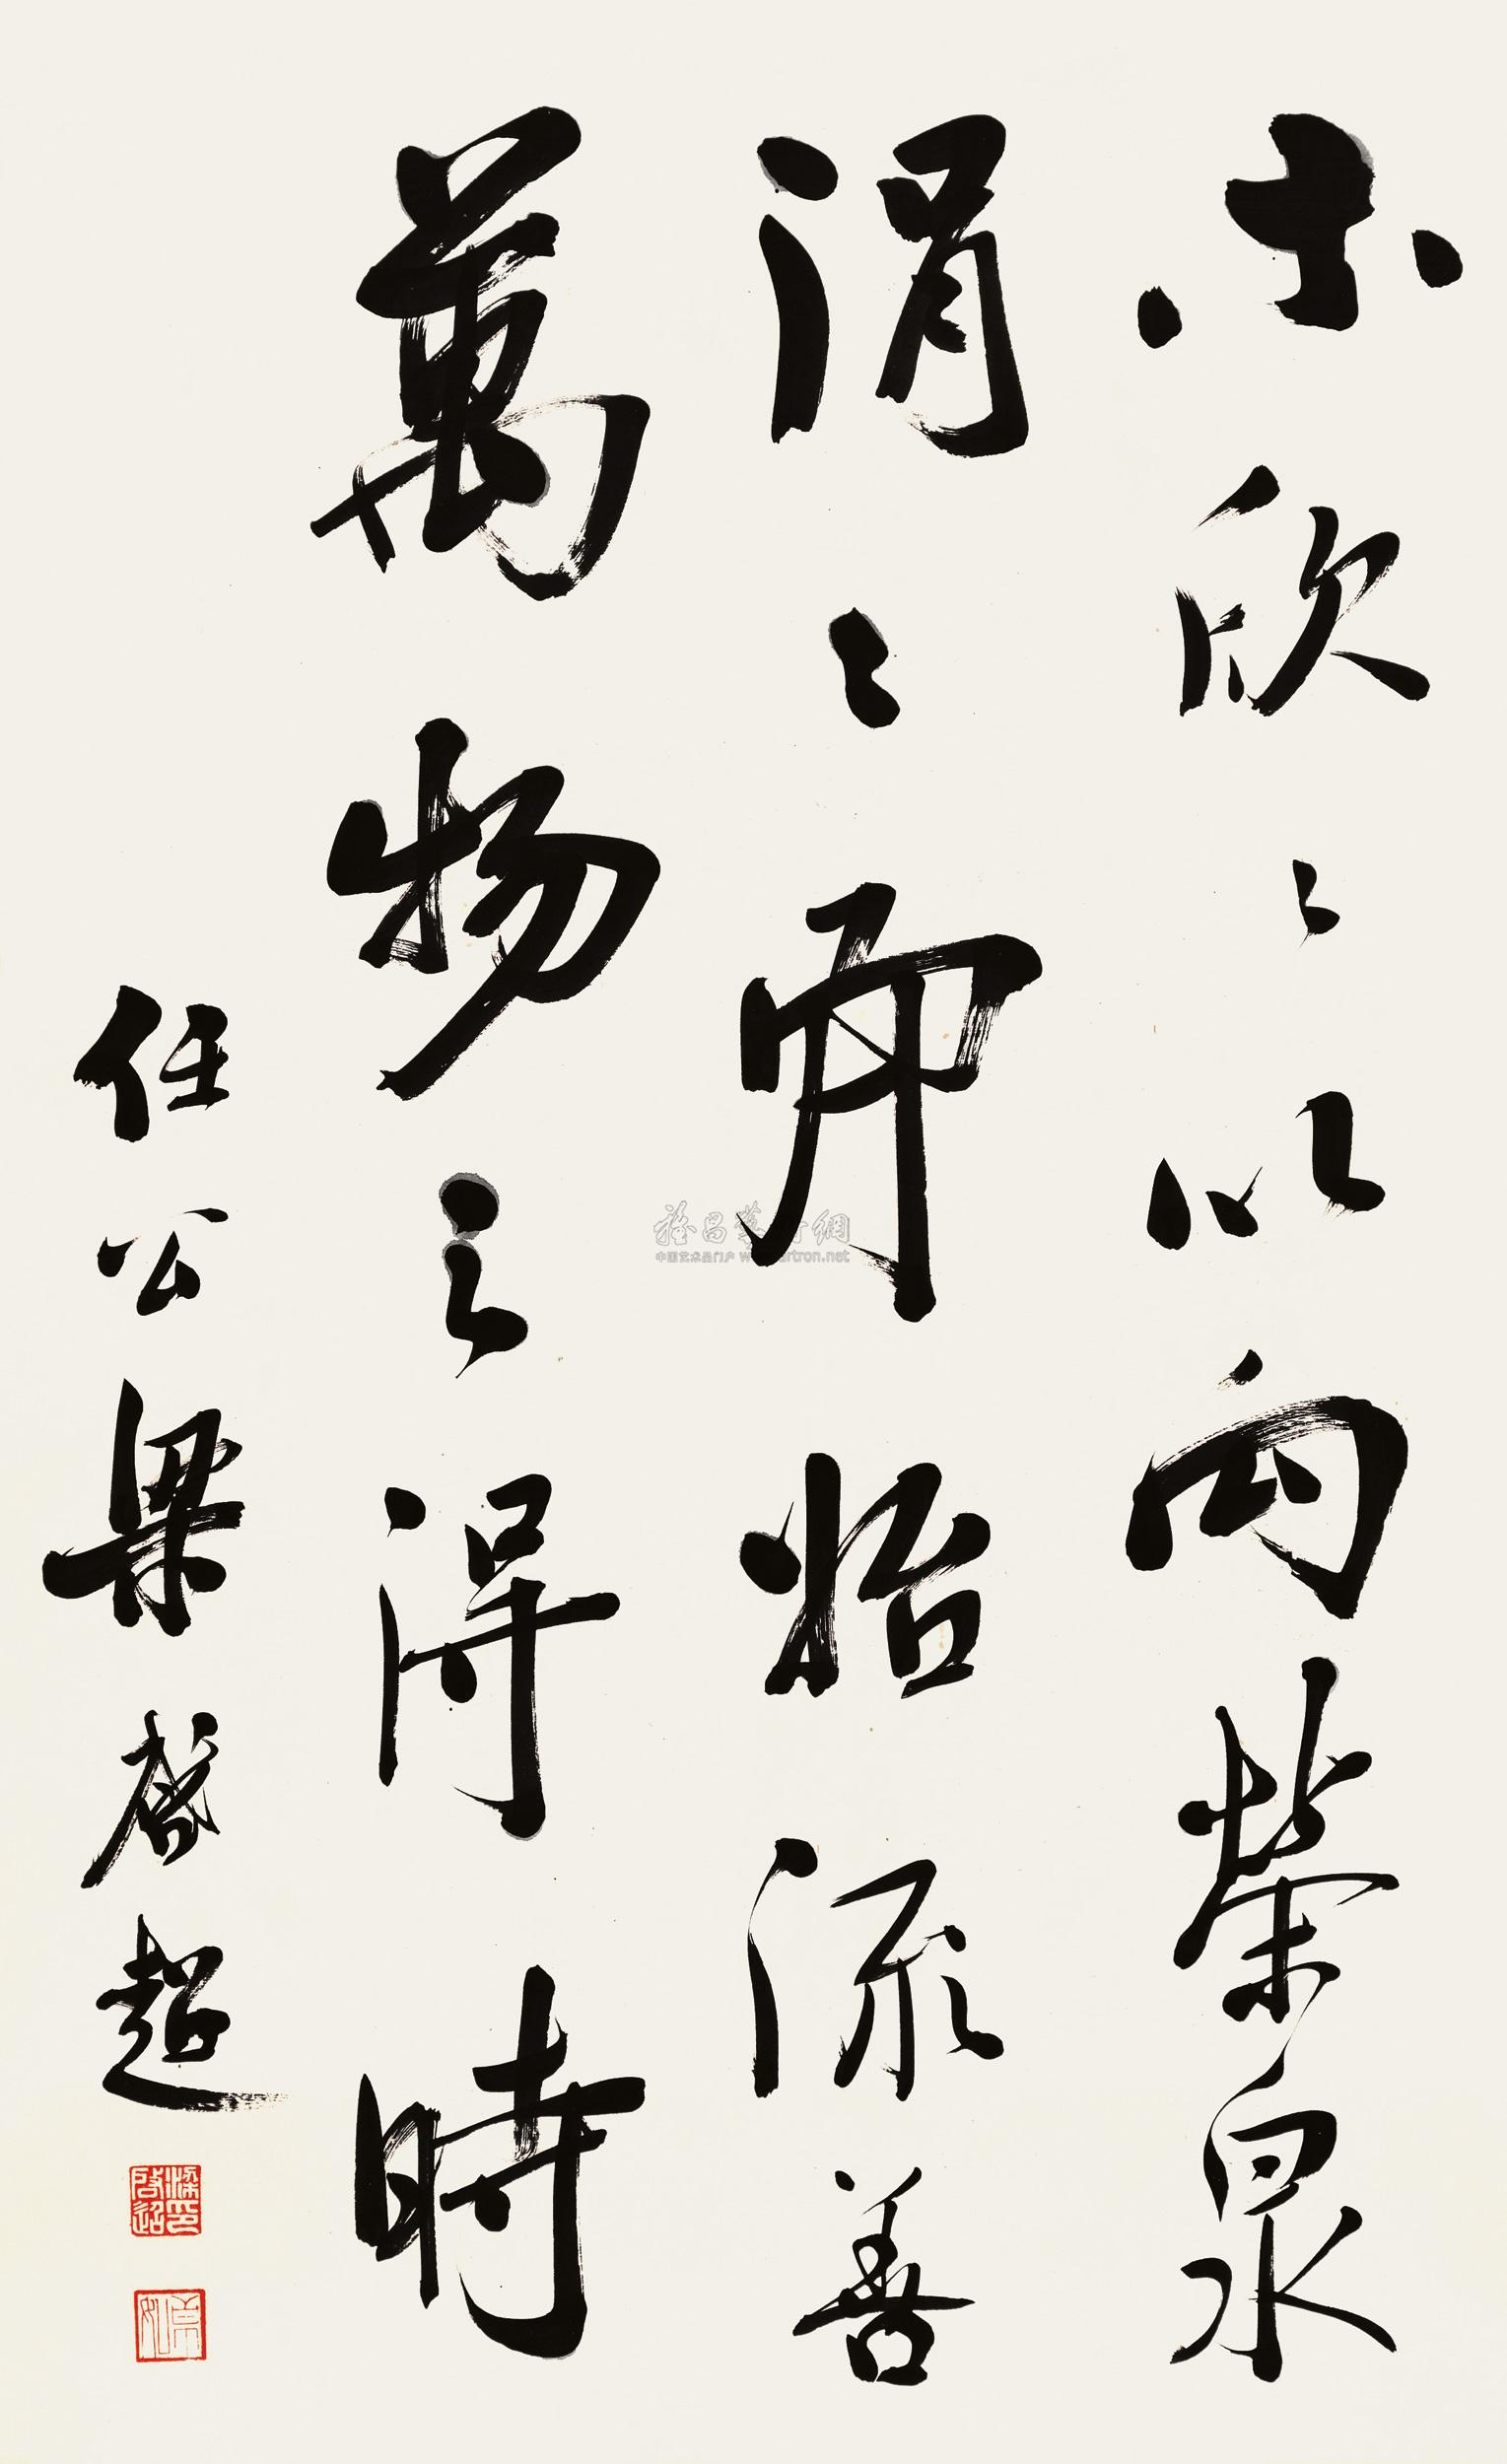 木欣々以向榮泉
涓々而始流善
萬物之得時
任公梁啓超
雅昌藝術網
中国艺术品门户 www.artron.net